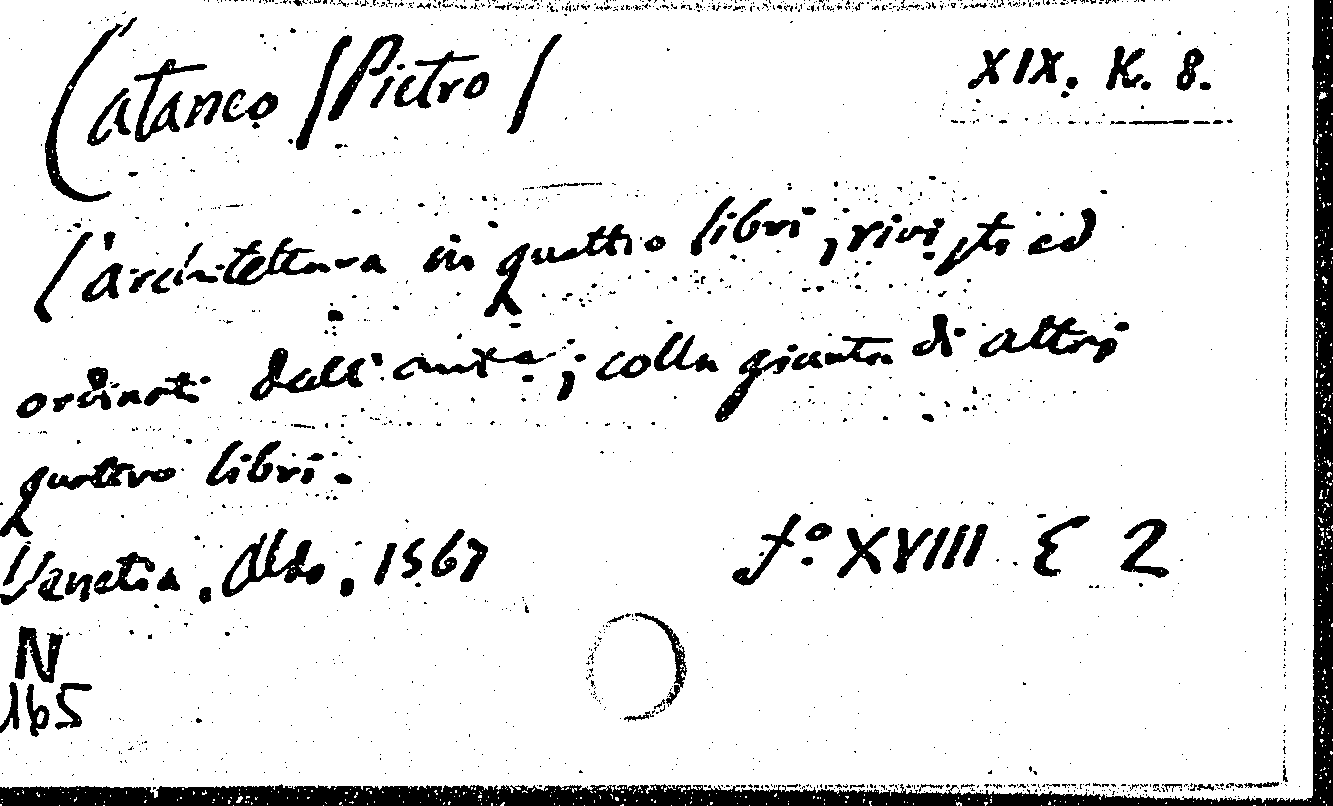 Cataneo /Pietro/ XIX. K. 8.
l'architettura in quattro libri, rivisti ed
ordinati dall' ; colla giunta di altri
quattro libri.
Venetia. Aldo. 1567 f.º XVIII E 2
N
165